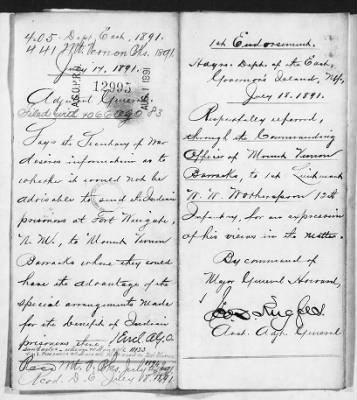 405 - Dept. East. 1891.
441 Mt. Vernon Bks. 1891.
July 14, 1891.
A.G.O. P.R.D.
12995
AUG 1 1891
Adjutant General
Filed with 10660 A.G.O. 83
Says the Secretary of War
desires information as to
whether it would not be
advisable to send the Indian
prisoners at Fort Wingate,
N.M., to Mount Vernon
Barracks where they could
have the advantage of the
special arrangements made
for the benefit of Indian
prisoners there.
Recd. Mt. V. Bks. July
Recd. D. E. July 18. 1891.
1st Endorsement.
Hdqrs. Dept. of the East,
Governor's Island, N.Y.
July 18. 1891.
Respectfully referred,
through the Commanding
Officer of Mount Vernon
Barracks, to 1st Lieutenant
W. W. Wotherspoon 12th
Infantry, for an expression
of his views in the matter.
By command of
Major General Howard,
Asst. Adjt. General